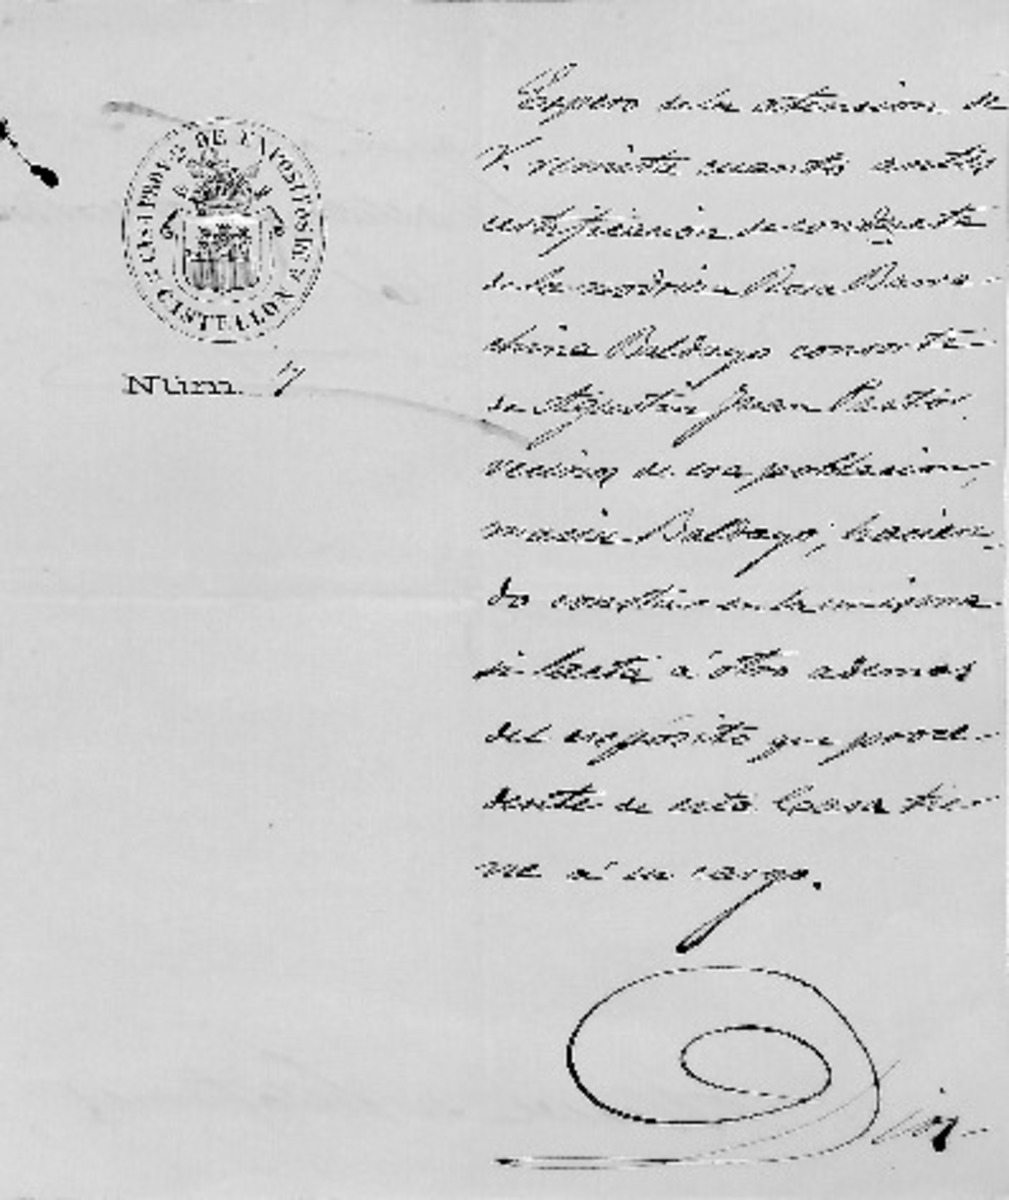 CASA PROVAL DE EXPOSITOS DE
CASTELLON
Núm.
Espero de la atencion de
V. remita cuanto antes
certificacion de conducta
de la nodriza Rosa Barra-
china Baldayo consorte
de Agustin Juan Pastor,
vecinos de esa poblacion,
masia Baldayo, hacien-
do constar en la misma
si lacta á otro ademas
del expósito que proce-
dente de esta Casa tie-
ne á su cargo.